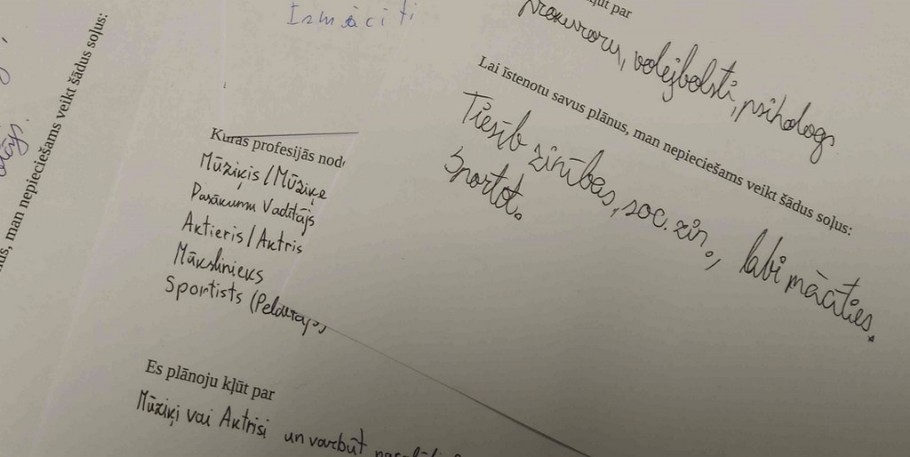 Izmācīti
nus, man nepieciešams veikt šādus soļus:
Kuras profesijās
Mūziķis / Mūziķe
Pasākumu Vadītājs
Aktieris / Aktris
Mākslinieks
Sportists (Peldētājs)
Es plānoju kļūt par
Mūziķi vai Aktrisi un varbūt
kļūt par
prokuroru, volejbolisti, psihologs
Lai īstenotu savus plānus, man nepieciešams veikt šādus soļus:
Tiesīb zinības, soc. zin., labi mācīties.
Sportot.